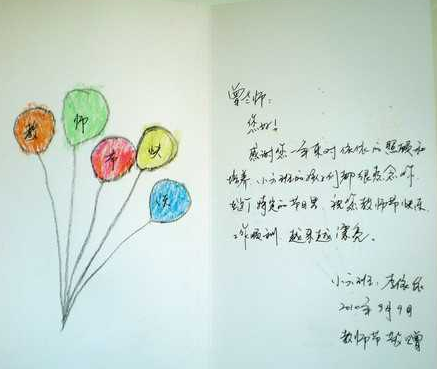 教
师
节
快
乐
曾老师:
您好!
感谢您一年来对依依的照顾和
培养,小六班的孩子们都很想念你
在这个特定的节日里 祝您教师节快乐
工作顺利 越来越漂亮。
小六班:李依依
2010年9月9日
教师节敬赠